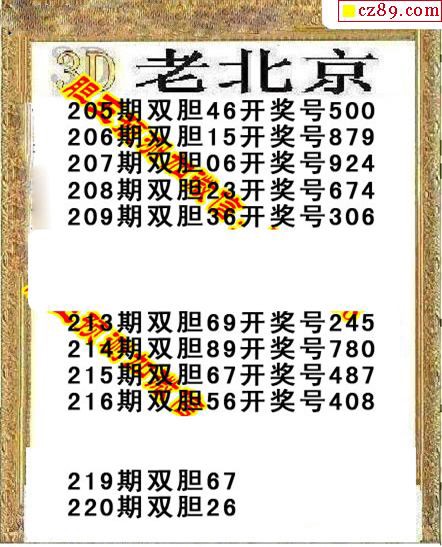 cz89.com
3D 老北京
205期双胆46开奖号500
206期双胆15开奖号879
207期双胆06开奖号924
208期双胆23开奖号674
209期双胆36开奖号306
213期双胆69开奖号245
214期双胆89开奖号780
215期双胆67开奖号487
216期双胆56开奖号408
219期双胆67
220期双胆26